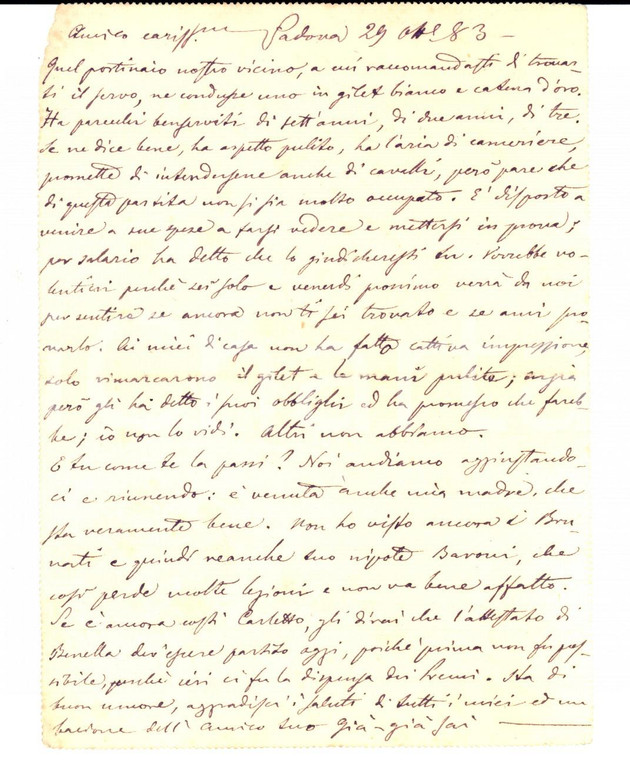 Amico cariss.mo Padova 29 8bre 83 -
Quel portinaio nostro vicino, a cui raccomandasti di trovar-
ti il servo, ne condusse uno in gilet bianco e catena d'oro.
Ha parecchi benserviti di sett'anni, di due anni, di tre.
Se ne dice bene, ha aspetto pulito, ha l'aria di cameriere,
promette di intendersene anche di cavalli, però pare che
di questa partita non si sia molto occupato. E' disposto a
venire a sue spese a farsi vedere e mettersi in prova;
per salario ha detto che lo giudicheresti tu. Verrebbe vo-
lentieri perchè sei solo e venerdì prossimo verrà da noi
per sentire se ancora non ti sei trovato e se ami pro-
varlo. Ai miei di casa non ha fatto cattiva impressione,
solo rimarcarono il gilet e le mani pulite;
però gli ha detto i suoi obblighi ed ha promesso che fareb-
be; io non lo vidi. Altri non abbiamo.
E tu come te la passi? Noi andiamo aggiustando-
ci e riunendo: è venuta anche mia madre, che
sta veramente bene. Non ho visto ancora i Bru-
nati e quindi neanche tuo nipote Baroni, che
così perde molte lezioni e non va bene affatto.
Se c'è ancora costì Carletto, gli dirai che l'attestato di
Benella dev'essere partito oggi, poichè prima non fu pos-
sibile, perchè ieri ci fu la dispensa dei Premi. Sta di
buon umore, aggradisci i saluti di tutti i miei ed un
bacione dell'Amico tuo Già-già sai